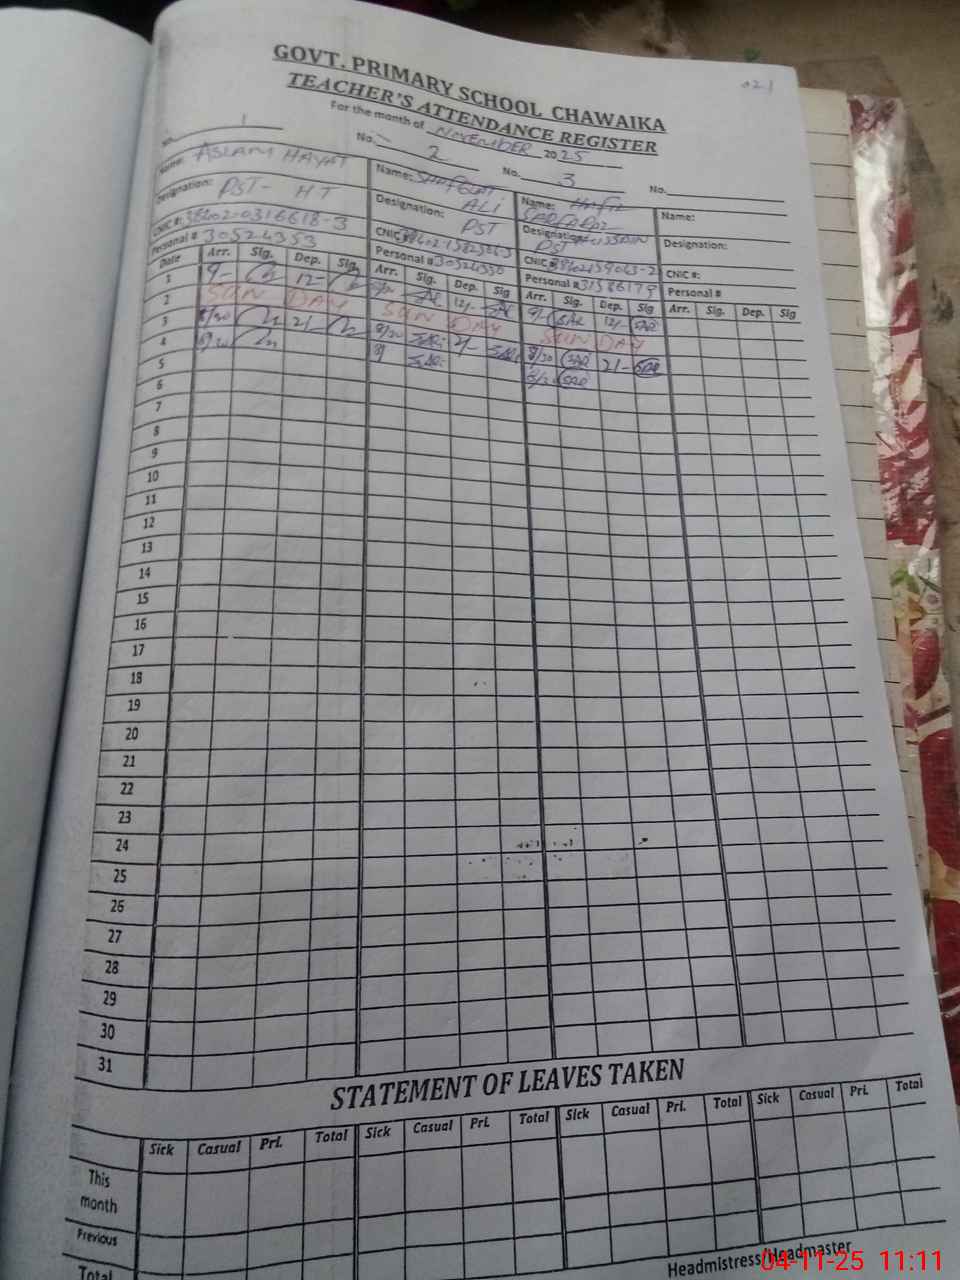 021
GOVT. PRIMARY SCHOOL CHAWAIKA
TEACHER'S ATTENDANCE REGISTER
For the month of NOVEMBER 2025
No. 1 No. 2 No. 3 No.
Name: ASLAM HAYAT Name: ALI Name: Name:
Designation: PST - HT Designation: PST Designation: PST Designation:
CNIC #: 38402-0316618-3 CNIC CNIC # CNIC #:
Personal # 30524353 Personal # Personal # 31586179 Personal #
Date Arr. Sig. Dep. Sig. Arr. Sig. Dep. Sig Arr. Sig. Dep. Sig Arr. Sig. Dep. Sig
1 9- 12- 12/- 9/- SAR 12/- SAR
2 SUN DAY SUN DAY SUN DAY
3 8/30 2/- 8/30 2/- 8/30 SAR 2/- SAR
4 8/30 SAR
5
6
7
8
9
10
11
12
13
14
15
16
17
18
19
20
21
22
23
24
25
26
27
28
29
30
31
STATEMENT OF LEAVES TAKEN
Sick Casual Pri. Total Sick Casual Pri. Total Sick Casual Pri. Total Sick Casual Pri. Total
This month
Previous
Total
Headmistress/Headmaster
04-11-25 11:11